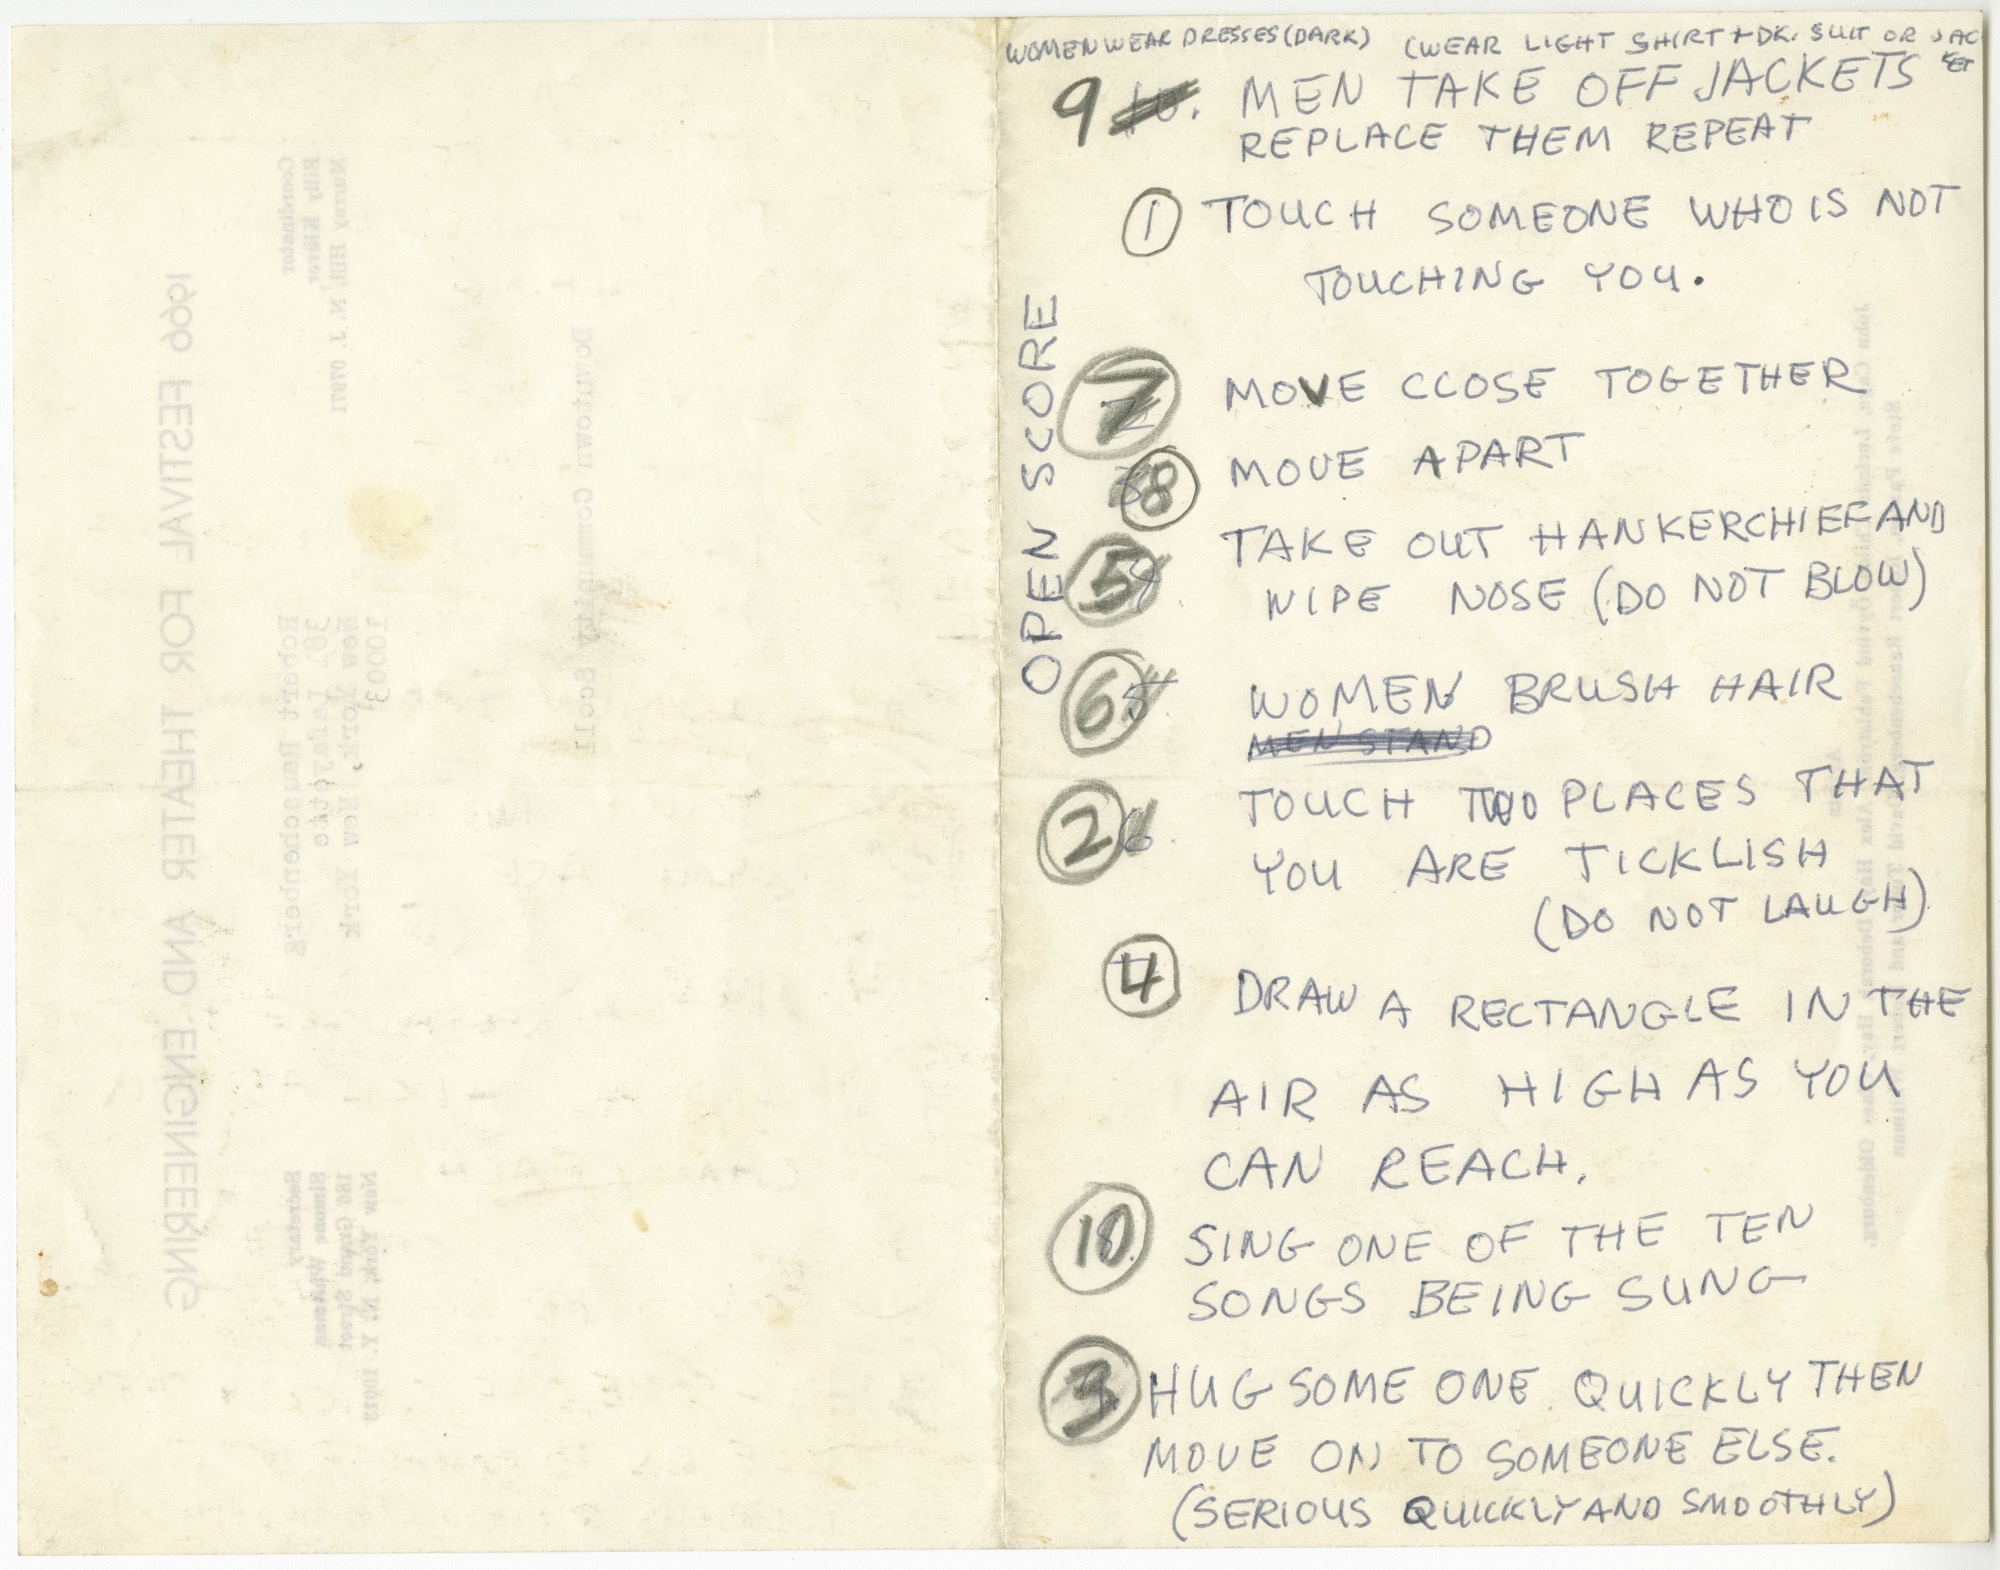 WOMEN WEAR DRESSES (DARK) (WEAR LIGHT SHIRT + DK. SUIT OR JACKET
9 10. MEN TAKE OFF JACKETS
REPLACE THEM REPEAT
1 TOUCH SOMEONE WHO IS NOT
TOUCHING YOU.
OPEN SCORE
7 MOVE CLOSE TOGETHER
8 MOVE APART
5 TAKE OUT HANKERCHIEF AND
WIPE NOSE (DO NOT BLOW)
6 5 WOMEN BRUSH HAIR
MEN STAND
2 6. TOUCH TWO PLACES THAT
YOU ARE TICKLISH
(DO NOT LAUGH)
4 DRAW A RECTANGLE IN THE
AIR AS HIGH AS YOU
CAN REACH.
10 SING ONE OF THE TEN
SONGS BEING SUNG
3 HUG SOME ONE QUICKLY THEN
MOVE ON TO SOMEONE ELSE.
(SERIOUS QUICKLY AND SMOOTHLY)
1966 FESTIVAL FOR THEATER AND ENGINEERING
Coordinator
Billy Klüver
Murray Hill N. J. 07971
Robert Rauschenberg
381 Lafayette
New York, New York
10003
Secretary
Simone Whitman
New York, N. Y. 10013
Downtown Community Scoll